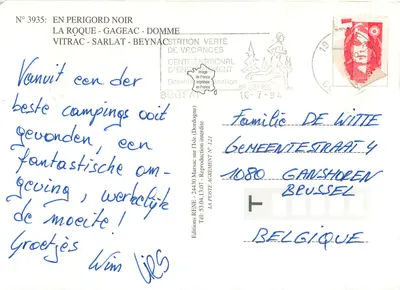 N° 3935: EN PERIGORD NOIR
LA ROQUE - GAGEAC - DOMME
VITRAC - SARLAT - BEYNAC
Vanuit een der
beste campings ooit
gevonden, een
fantastische om-
geving, werkelijk
de moeite!
Groetjes
Wim
Editions RENE - 24430 Marsac sur l'Isle (Dordogne)
Tél. 53.04.13.07 - Reproduction interdite
STATION VERTE
DE VACANCES
16-7-94
Image
de France
en France
Familie DE WITTE
GEMEENTESTRAAT 4
1080 GANSHOREN
BRUSSEL
T
BELGIQUE